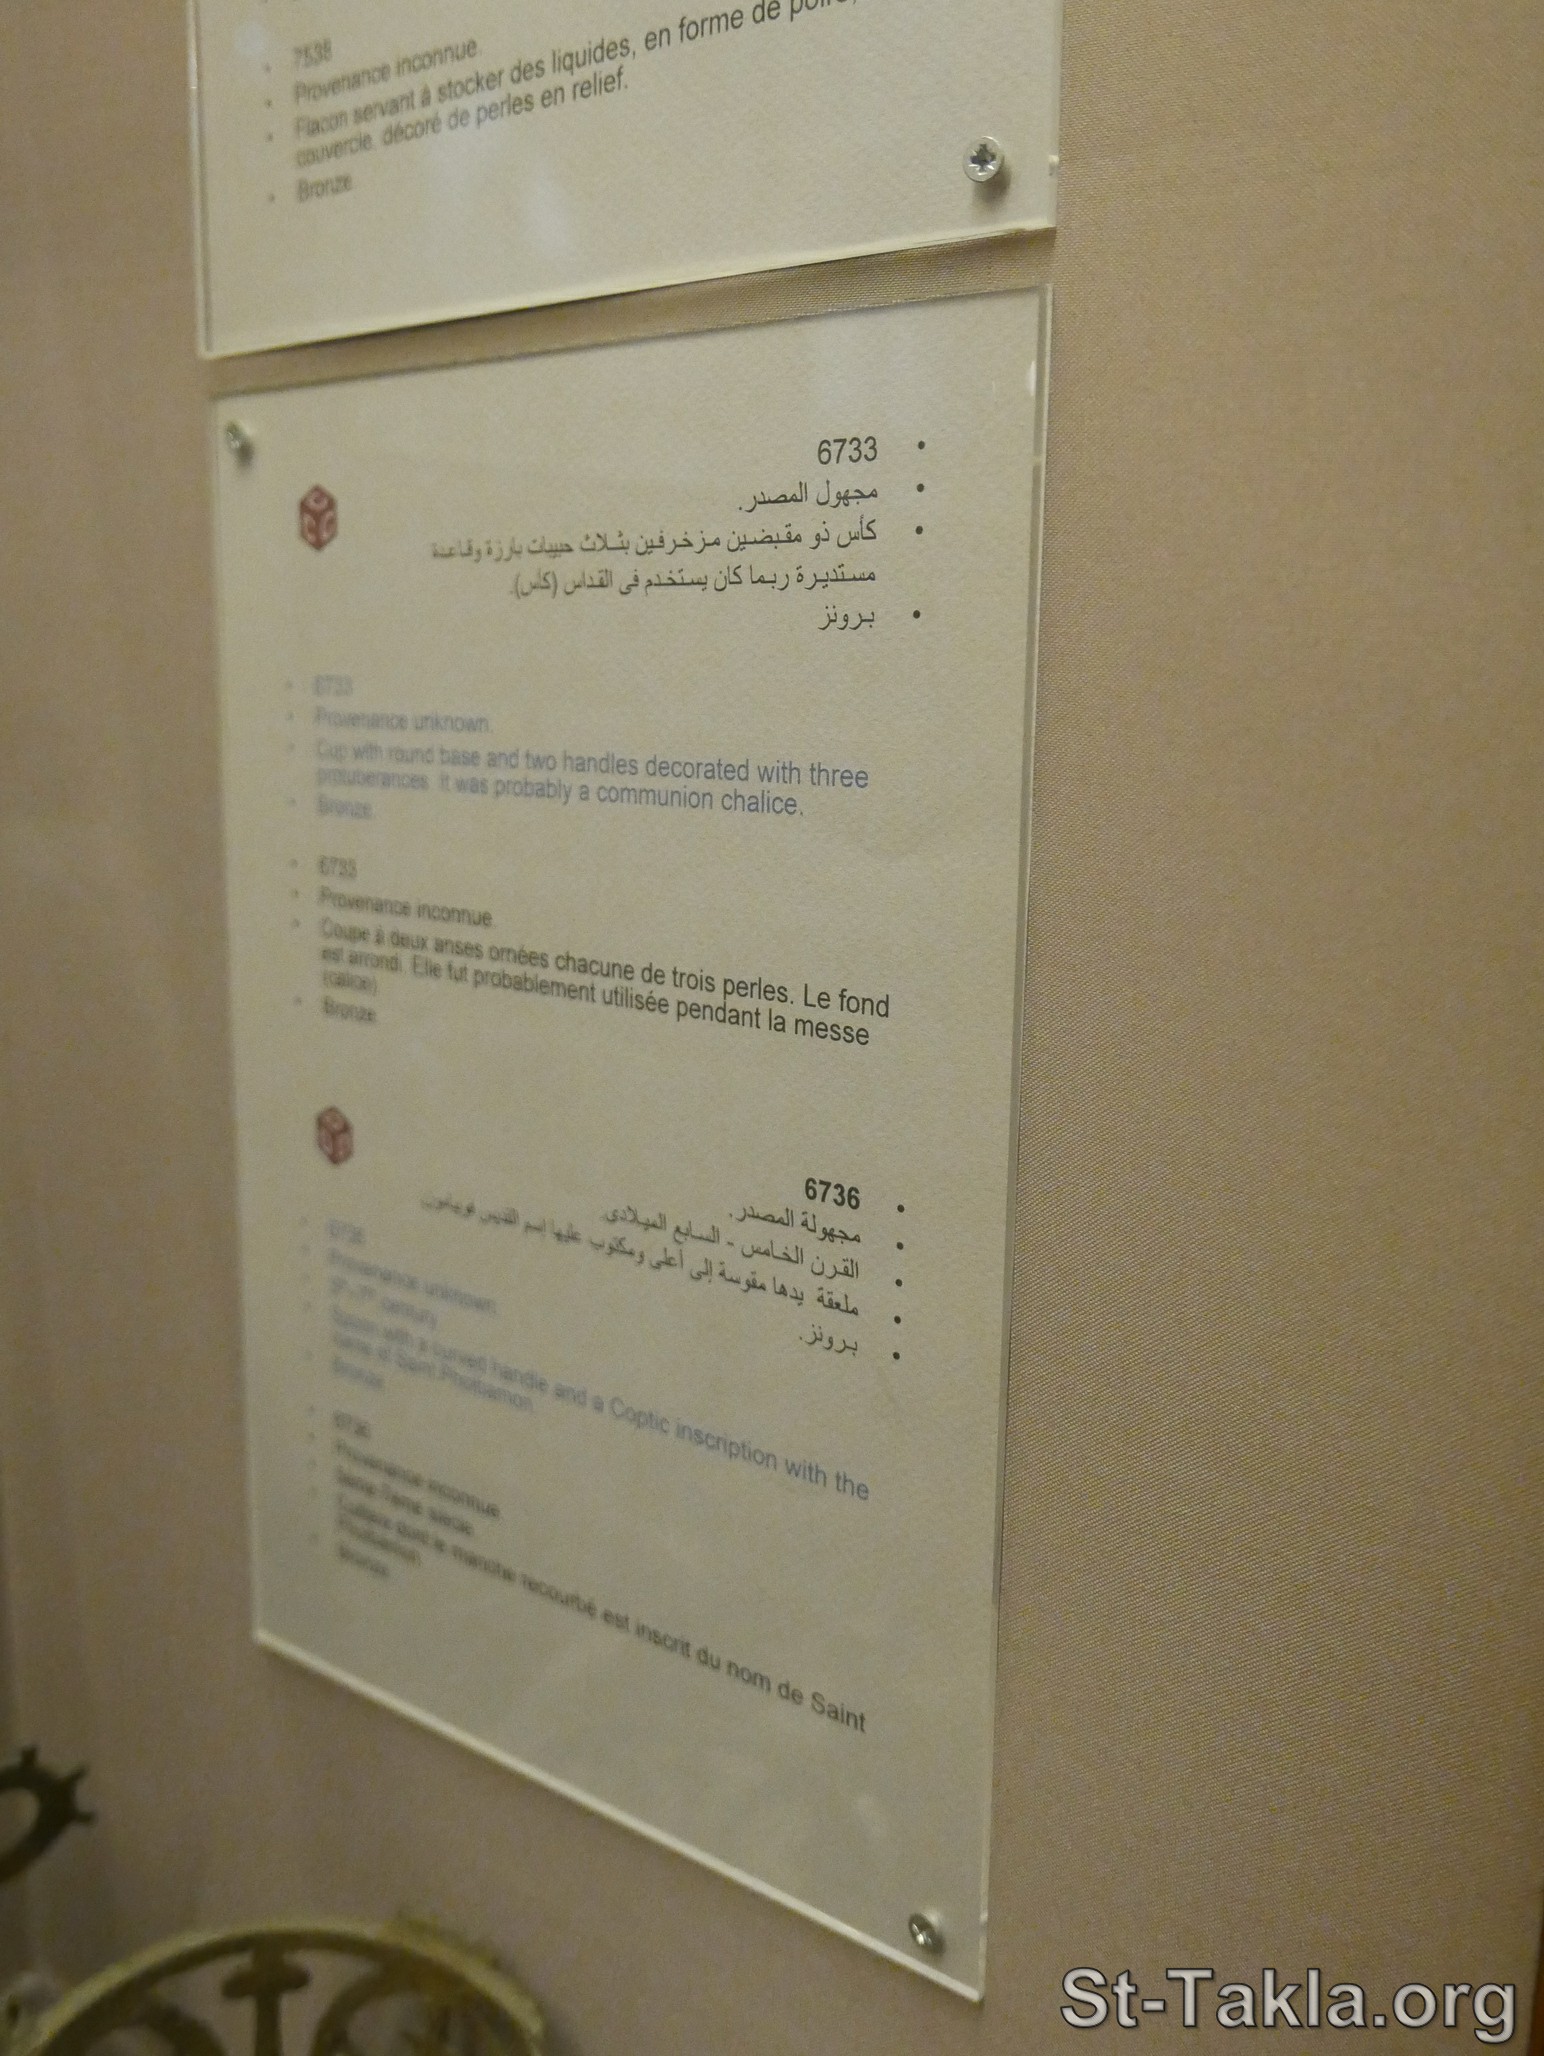 7538
Provenance inconnue.
Flacon servant à stocker des liquides, en forme de poire,
couvercle, décoré de perles en relief.
Bronze
6733
مجهول المصدر.
كأس ذو مقبضين مزخرفين بثلاث حبيبات بارزة وقاعدة
مستديرة ربما كان يستخدم فى القداس (كأس).
برونز
6733
Provenance unknown.
Cup with round base and two handles decorated with three
protuberances. It was probably a communion chalice.
Bronze.
6733
Provenance inconnue.
Coupe à deux anses ornées chacune de trois perles. Le fond
est arrondi. Elle fut probablement utilisée pendant la messe
(calice)
Bronze
6736
مجهولة المصدر.
القرن الخامس - السابع الميلادى.
ملعقة يدها مقوسة إلى أعلى ومكتوب عليها اسم القديس
برونز.
6736
Provenance unknown.
century
Spoon with a curved handle and a Coptic inscription with the
name of Saint Phoibamon.
Bronze
6736
Provenance inconnue
siècle
Cuillère dont le manche recourbé est inscrit du nom de Saint
Bronze
St-Takla.org